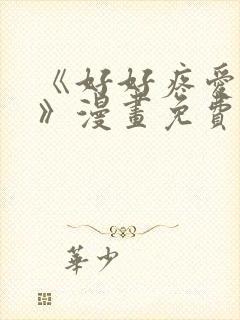 《好好疼愛
》漫畫免費
華少